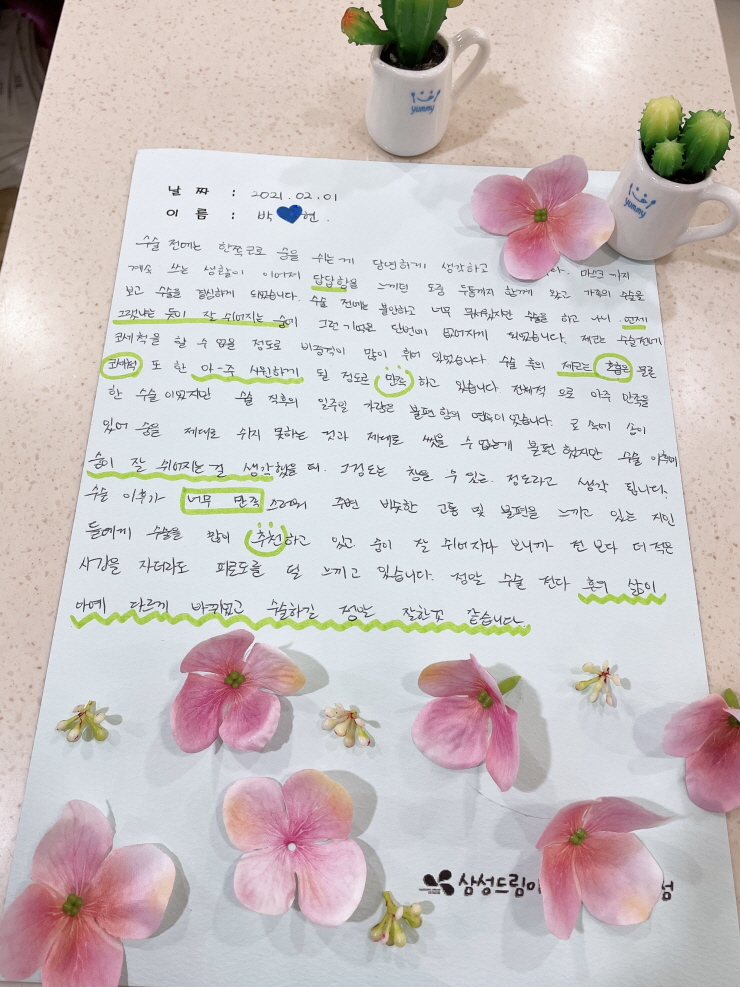 yummy
yummy
날 짜 : 2021.02.01
이 름 : 박 현.
수술 전에는 한쪽코로 숨을 쉬는게 당연하게 생각하고 다. 마스크까지
계속 쓰는 생활이 이어져 답답함을 느끼면 도중 두통까지 함께 왔고 가족의 수술을
보고 수술을 결심하게 되었습니다. 수술 전에는 불안하고 너무 무서웠지만 수술을 하고 나니 언제
그랬냐는 듯이 잘 쉬어지는 숨에 그런 기억은 단번에 없어지게 되었습니다. 저는 수술전에
코세척을 할 수 없을 정도로 비중격이 많이 휘어 있었습니다 수술 후의 제로는 호흡은 물론
코세척 또 한 아-주 시원하게 될 정도로 만족하고 있습니다. 전체적 으로 아주 만족을
한 수술이었지만 수술 직후의 일주일 가량은 불편함의 연속이었습니다. 코 속에 솜이
있어 숨을 제대로 쉬지 못하는 것과 제대로 씻을 수 없는게 불편 했지만 수술 이후에
숨이 잘 쉬어지는 걸 생각했을 때. 그정도는 참을 수 있는. 정도라고 생각 됩니다.
수술 이후가 너무 만족스러워서 주변 비슷한 고통 및 불편을 느끼고 있는 지인
들에게 수술을 많이 추천하고 있고 숨이 잘 쉬어지다 보니까 전 보다 더 적은
시간을 자더라도 피로도를 덜 느끼고 있습니다. 정말 수술 전과 후의 삶이
아예 다르게 바뀌었고 수술하길 정말 잘한것 같습니다.
삼성드림이 점